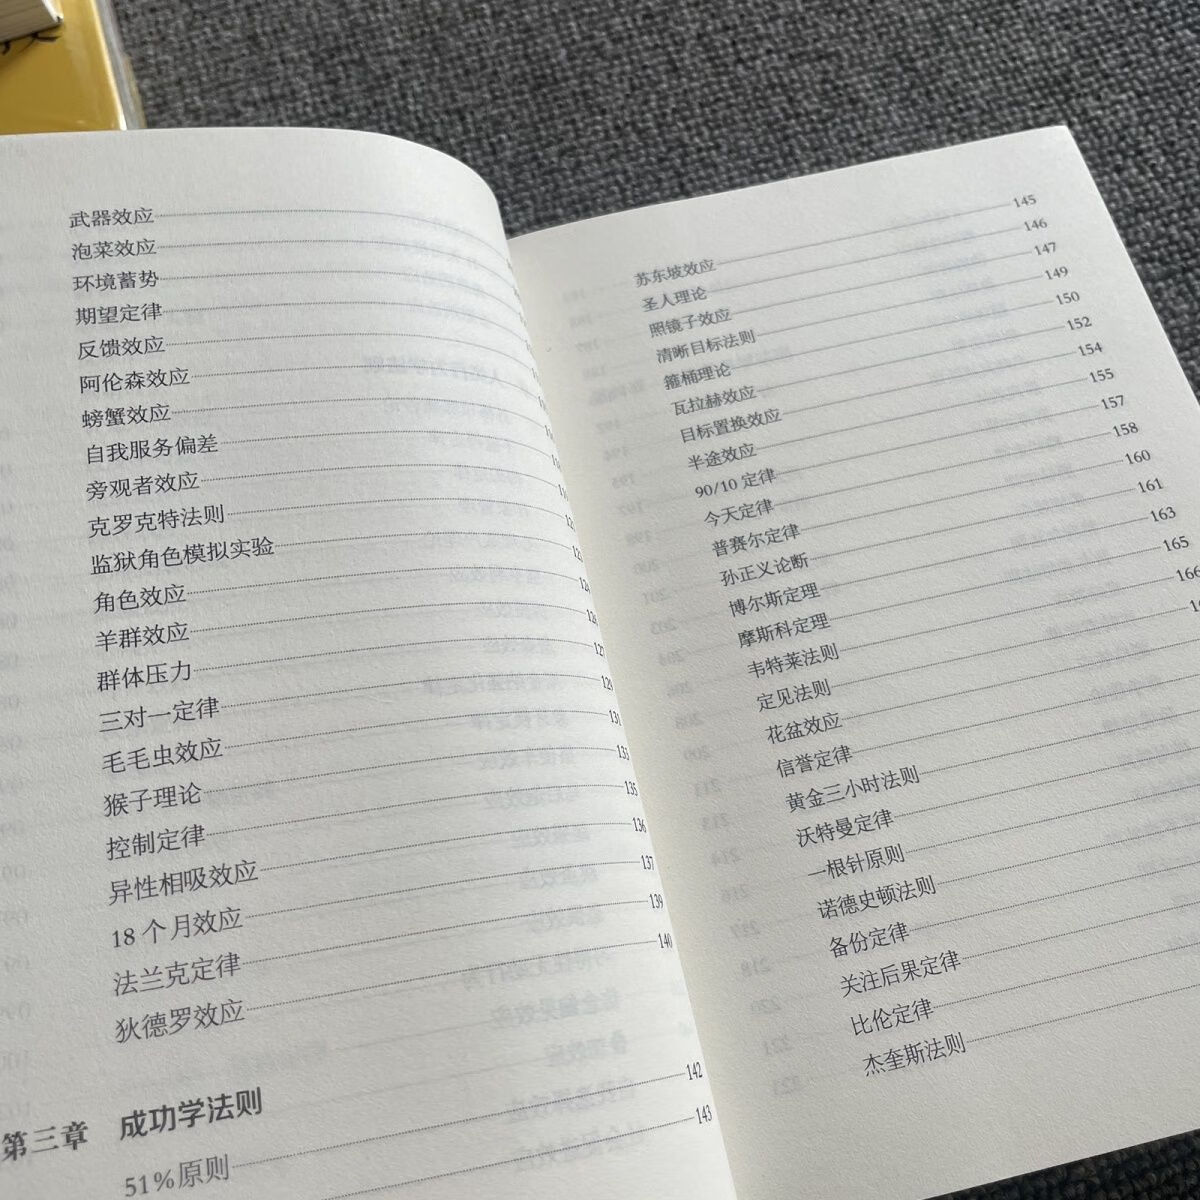 武器效应
泡菜效应
环境蓄势
期望定律
反馈效应
阿伦森效应
螃蟹效应
自我服务偏差
旁观者效应
克罗克特法则
监狱角色模拟实验
角色效应 124
羊群效应 126
群体压力 127
三对一定律 129
毛毛虫效应 131
猴子理论 133
控制定律 135
异性相吸效应 136
18 个月效应 137
法兰克定律 139
狄德罗效应 140
第三章 成功学法则 142
51%原则 143
苏东坡效应 145
圣人理论 146
照镜子效应 147
清晰目标法则 149
箍桶理论 150
瓦拉赫效应 152
目标置换效应 154
半途效应 155
90/10 定律 157
今天定律 158
普赛尔定律 160
孙正义论断 161
博尔斯定理 163
摩斯科定理 165
韦特莱法则 166
定见法则
花盆效应
信誉定律
黄金三小时法则
沃特曼定律
一根针原则
诺德史顿法则
备份定律
关注后果定律
比伦定律
杰奎斯法则